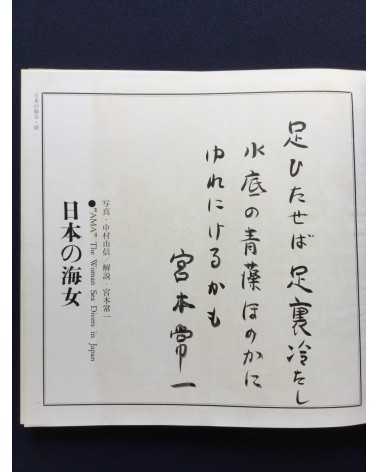 足ひたせば足裏冷たし
水底の青藻ほのかに
ゆれにけるかも
宮本常一
写真・中村由信/解説・宮本常一
●"AMA" The Woman Sea Divers in Japan
日本の海女